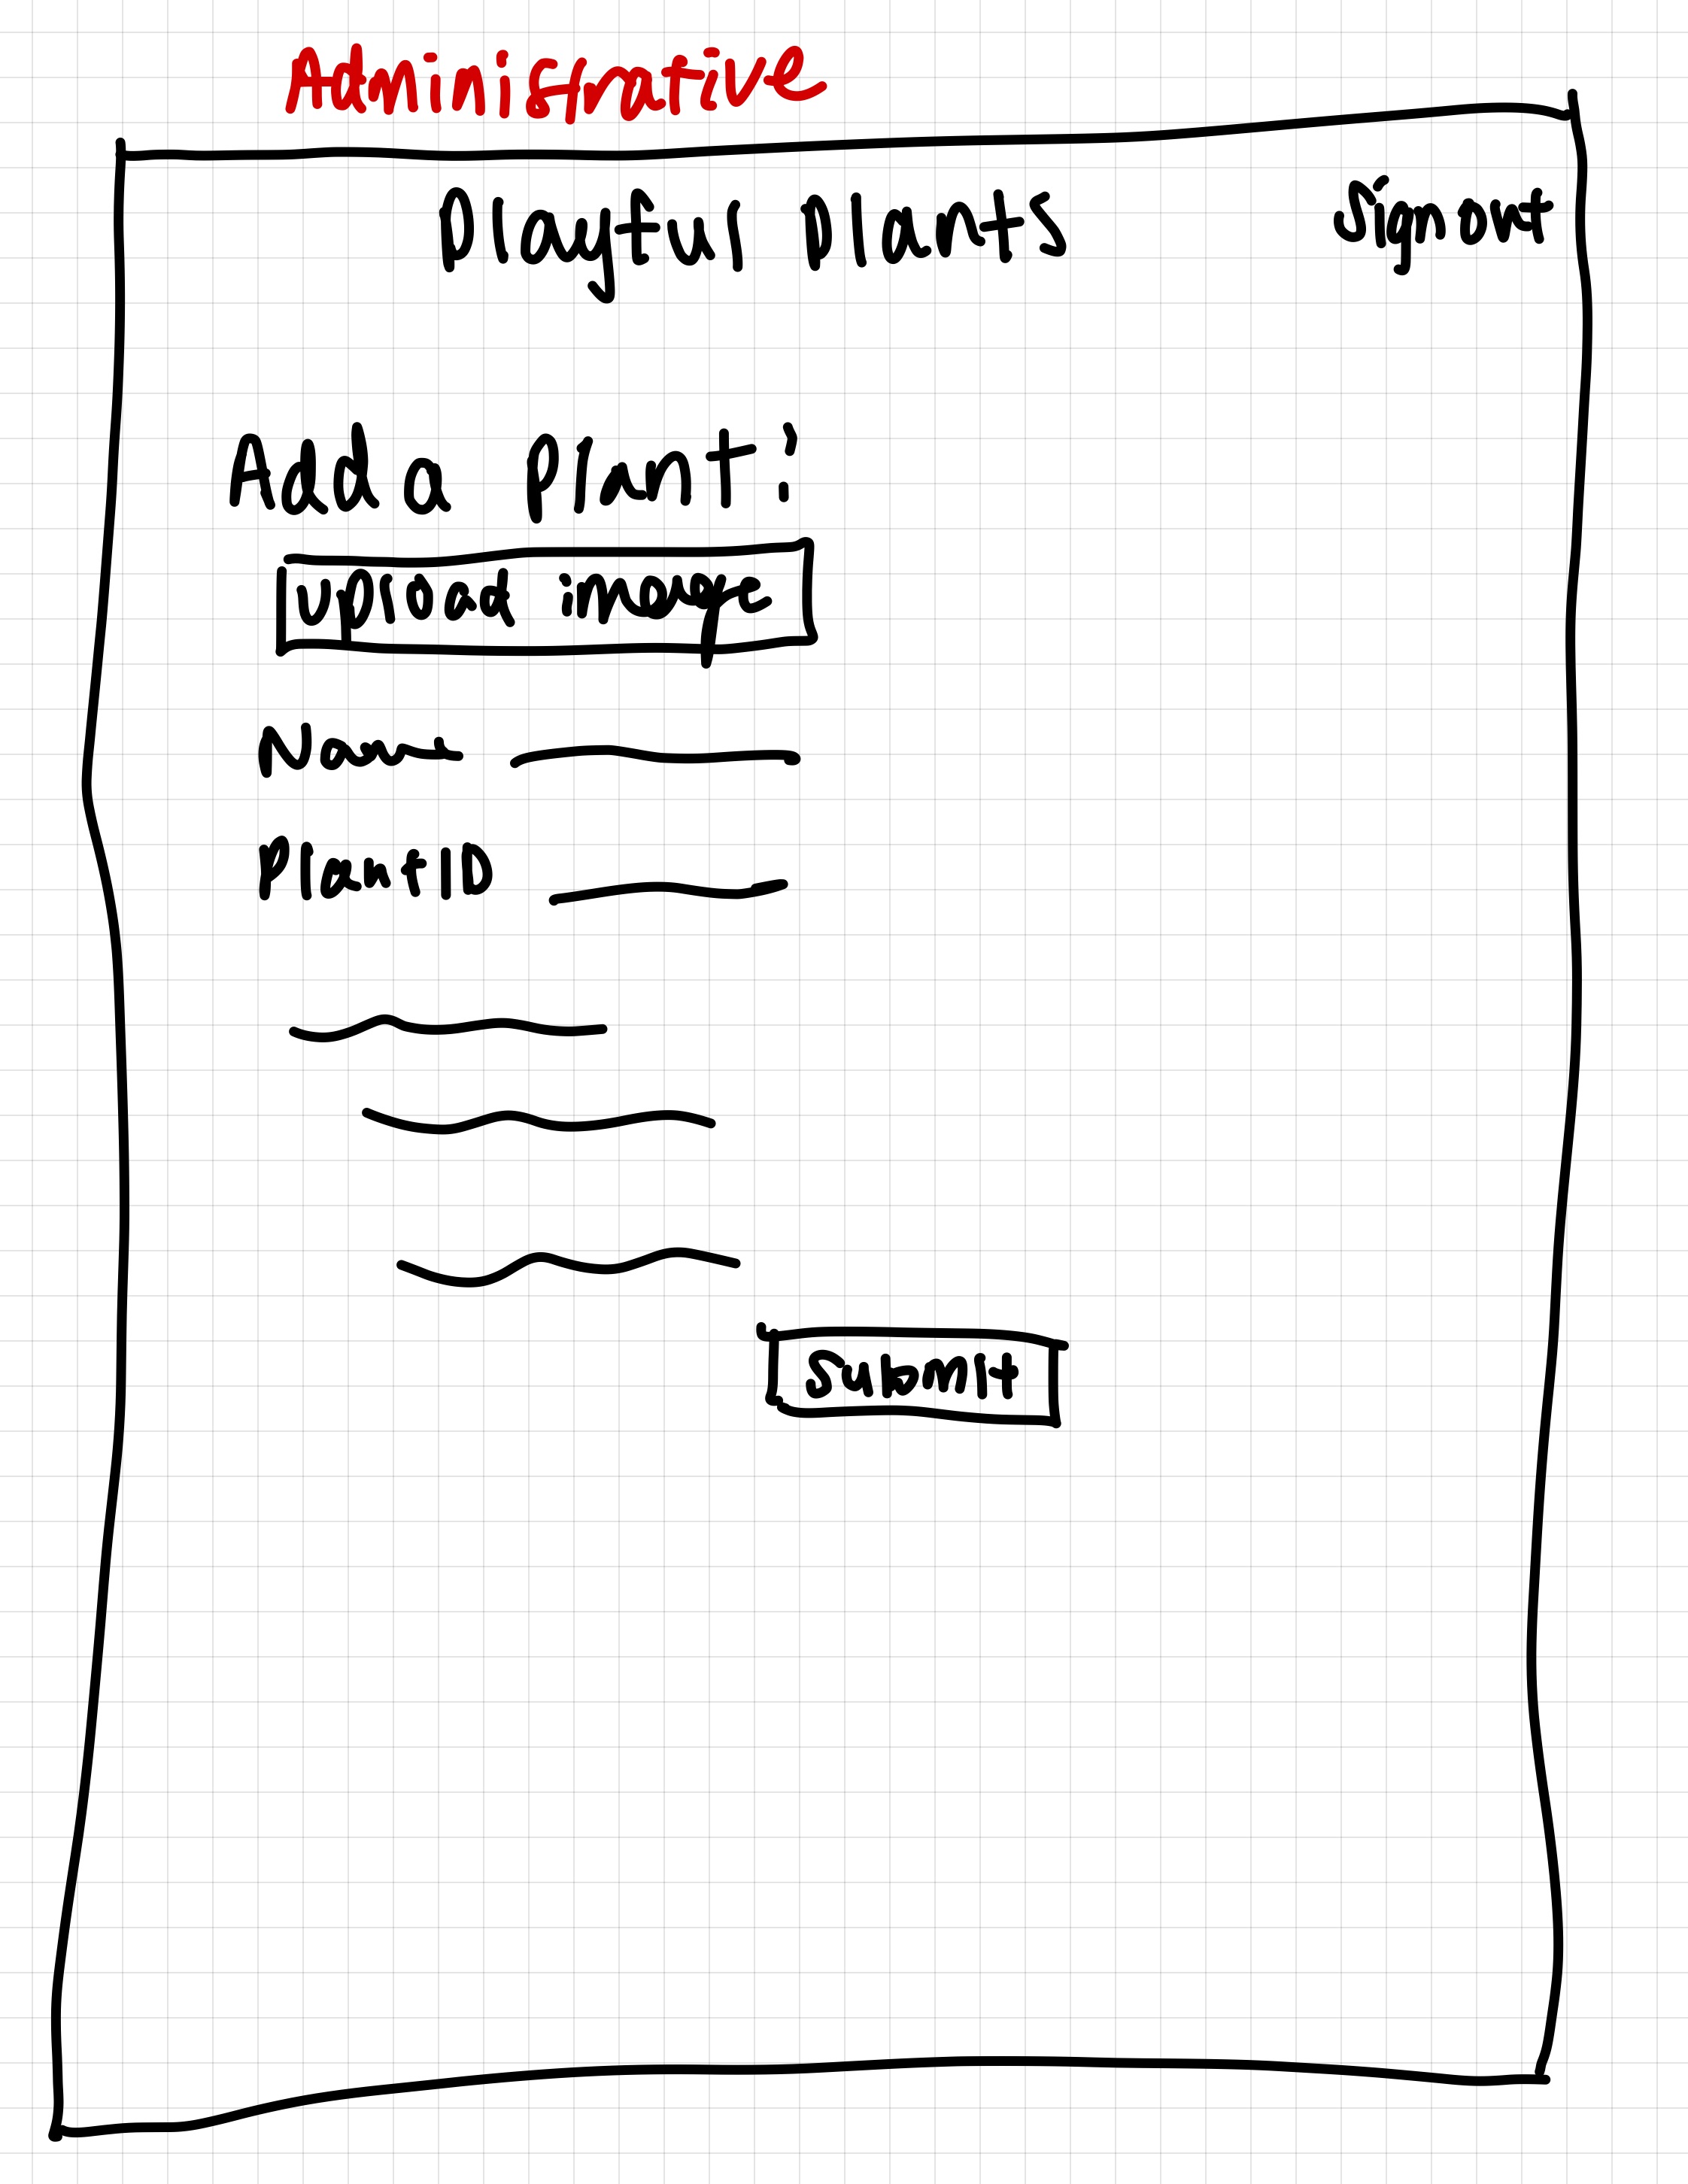 Administrative
Playful Plants Signout
Add a Plant:
upload image
Name
PlantID
Submit